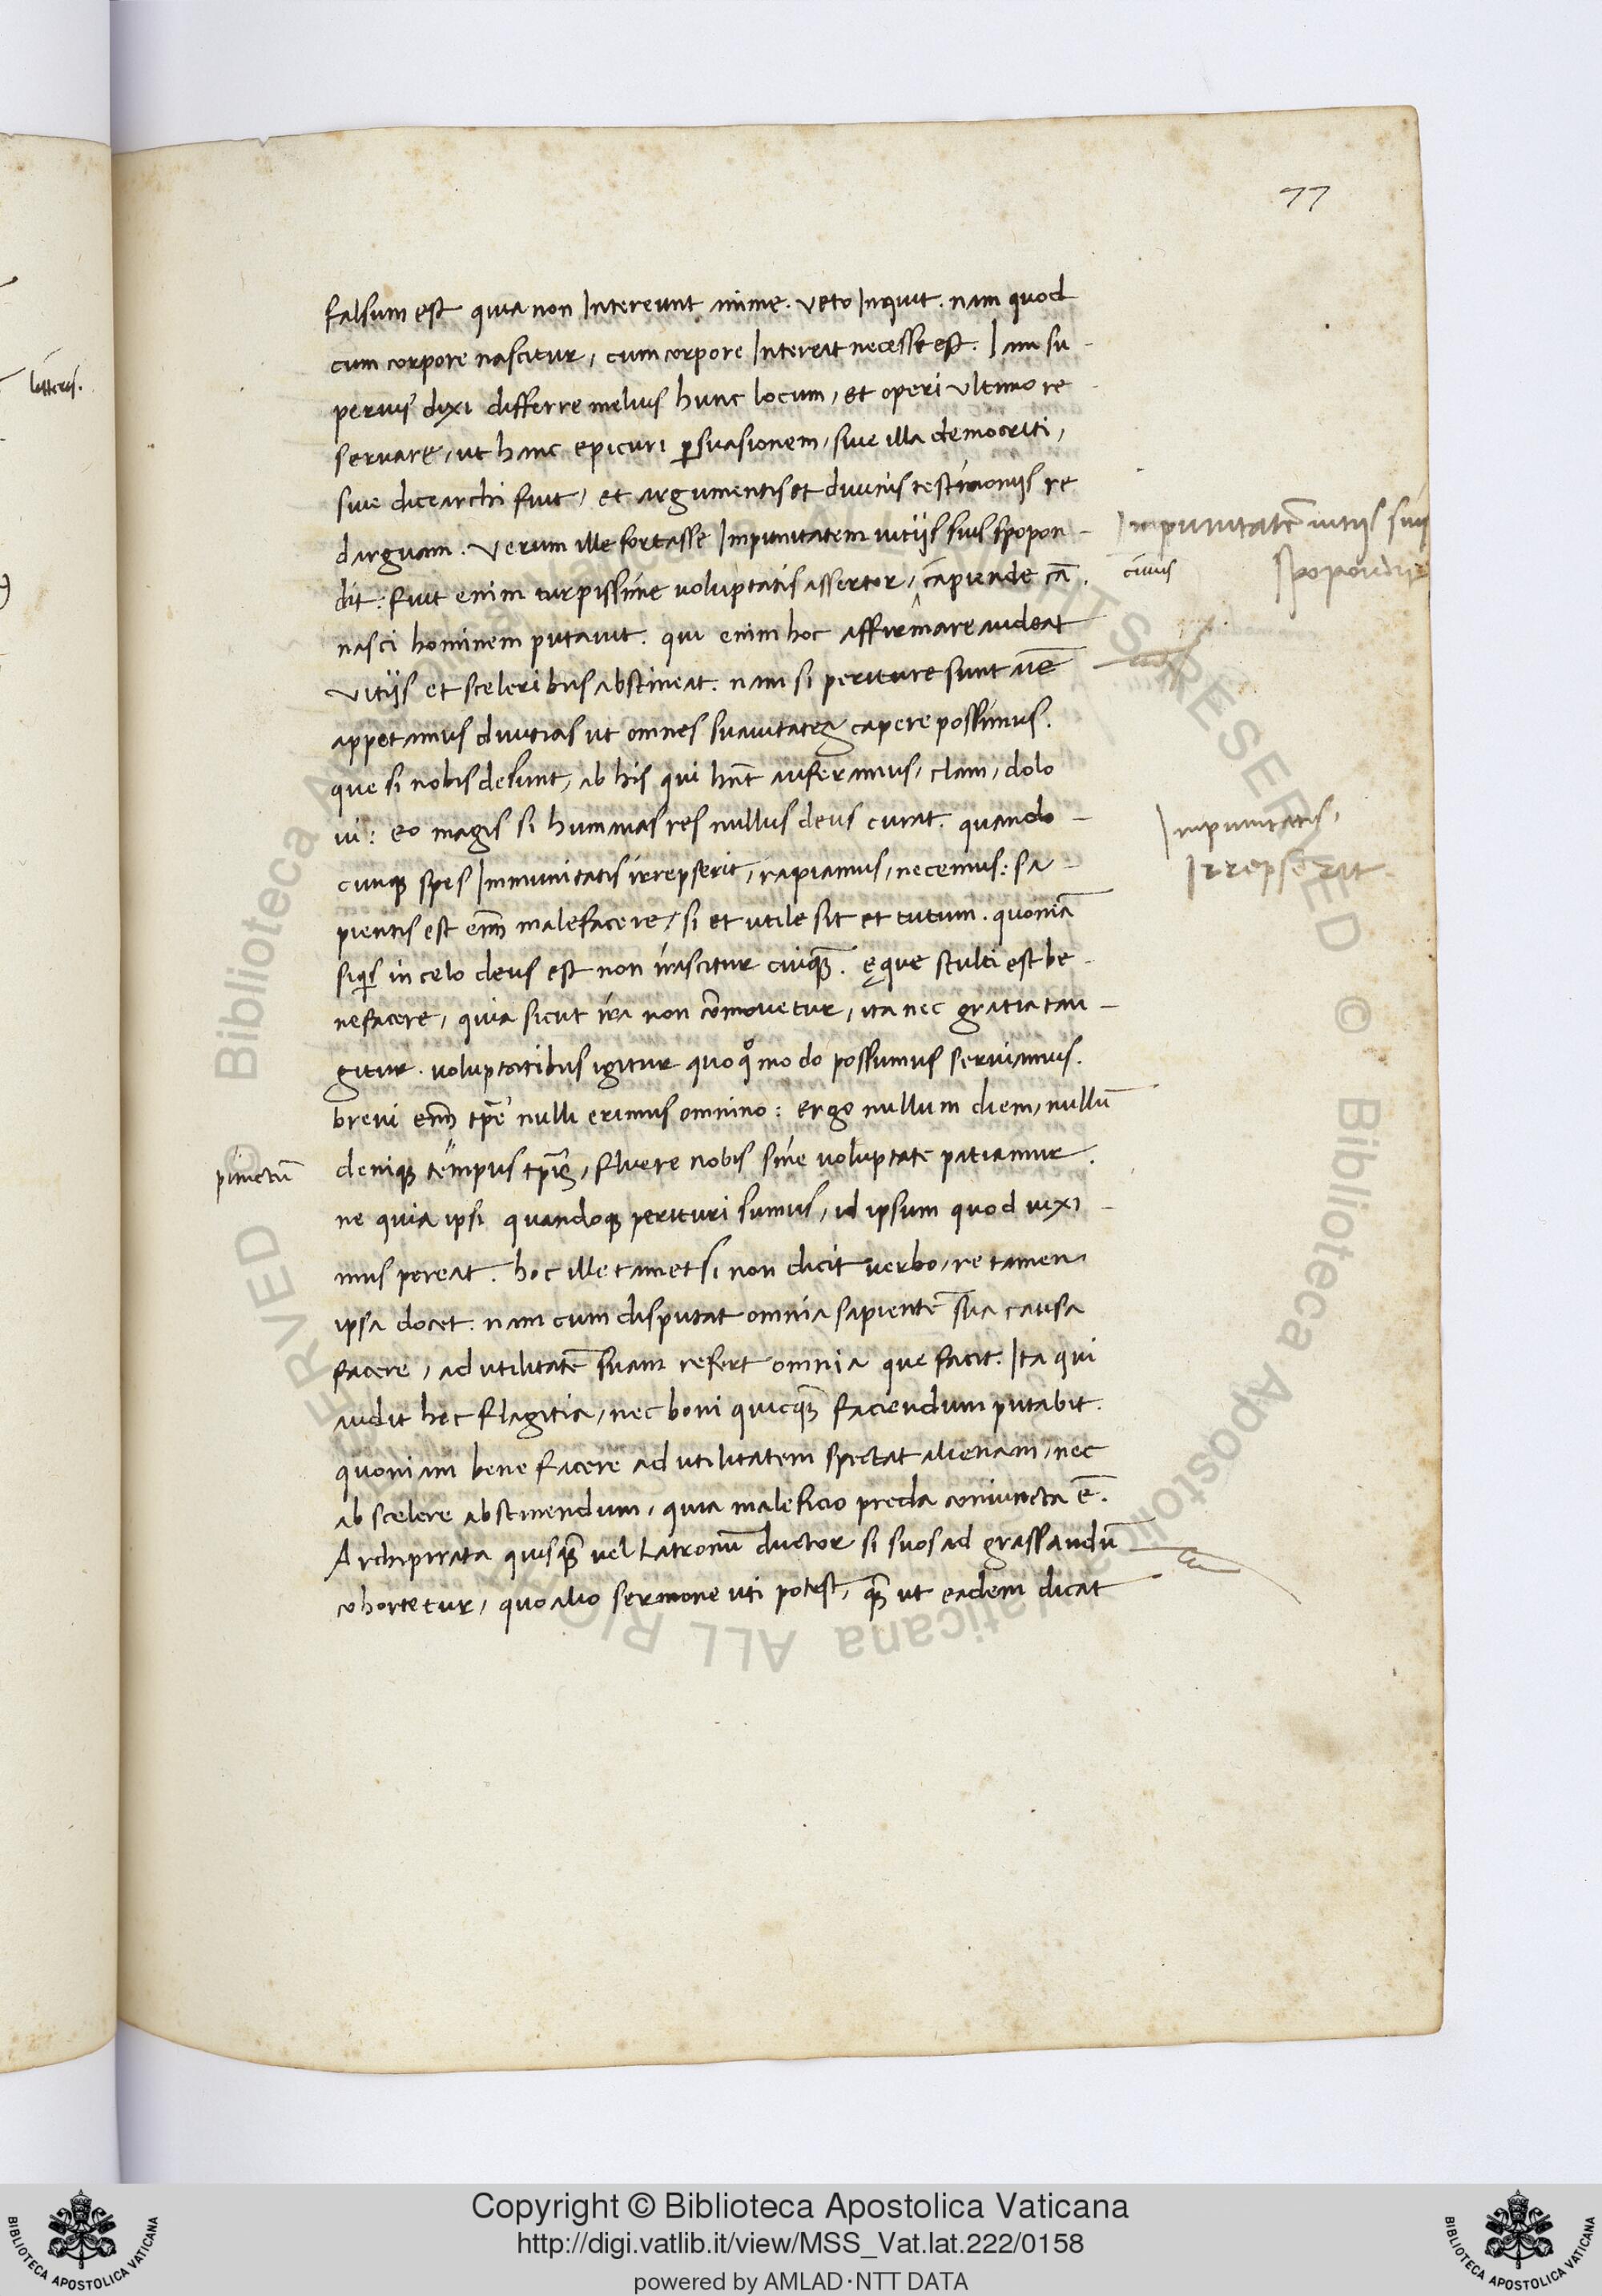 77
falsum est quia non Intereunt anime. Veto Inquit. nam quod
cum corpore nascitur, cum corpore Intereat necesse est. Iam su-
perius dixi differre melius hunc locum, et operi ultimo re
servare, ut hanc epicuri ꝑsuasionem, sive illa democriti,
sive dicearchi fuit, et argumentis et divinis testimoniis re
darguam. Verum ille fortasse Impunitatem vitiis suis spopon-
dit: fuit enim turpissime voluptatis assertor, capiende cā.
nasci hominem putavit. qui enim hoc affirmare audeat
vitiis et sceleribus abstineat. nam si periture sunt aīē
appetamus divitias ut omnes suavitates capere possimus.
que si nobis desunt, ab his qui hnt auferamus, clam, dolo
vi: eo magis si humanas res nullus deus curat. quando-
cunqꝫ spes Immunitatis irrepserit, rapiamus, necemus: sa-
pientis est enī malefacere, si et utile sit et tutum. quoniā
siqͥs in celo deus est non irascitur cuiqꝫ. ęque stulti est be-
nefacere, quia sicut ira non cōmovetur, ita nec gratia tan-
gitur. voluptatibus igitur quoqͦ modo possumus serviamus.
brevi enī tpē nulli erimus omnino: ergo nullum diem, nullū
deniqꝫ tempus tpīs, fluere nobis sine voluptate patiamur.
ne quia ipsi quandoqꝫ perituri sumus, id ipsum quod vixi-
mus pereat. hoc ille tametsi non dicit verbo, re tamen
ipsa docet. nam cum disputat omnia sapientē sua causa
facere, ad utilitatē suam refert omnia que facit. Ita qui
audit hec flagitia, nec boni quicqꝫ faciendum putabit.
quoniam bene facere ad utilitatem spectat alienam, nec
ab scelere abstinendum, quia maleficio preda coniuncta ē.
Archipirata quisqꝫ vel Latronū ductor si suos ad grassandū
cohortetur, quo alio sermone uti potest, qꝫ ut eadem dicat
Impunitatē vitiis suis
spopondit
cuius
Impunitatis,
Irrepserit
punctū
litteris.
Copyright © Biblioteca Apostolica Vaticana
http://digi.vatlib.it/view/MSS_Vat.lat.222/0158
powered by AMLAD·NTT DATA
BIBLIOTECA APOSTOLICA VATICANA
BIBLIOTECA APOSTOLICA VATICANA
© Biblioteca Apostolica Vaticana ALL RIGHTS RESERVED
© Biblioteca Apostolica Vaticana ALL RIGHTS RESERVED